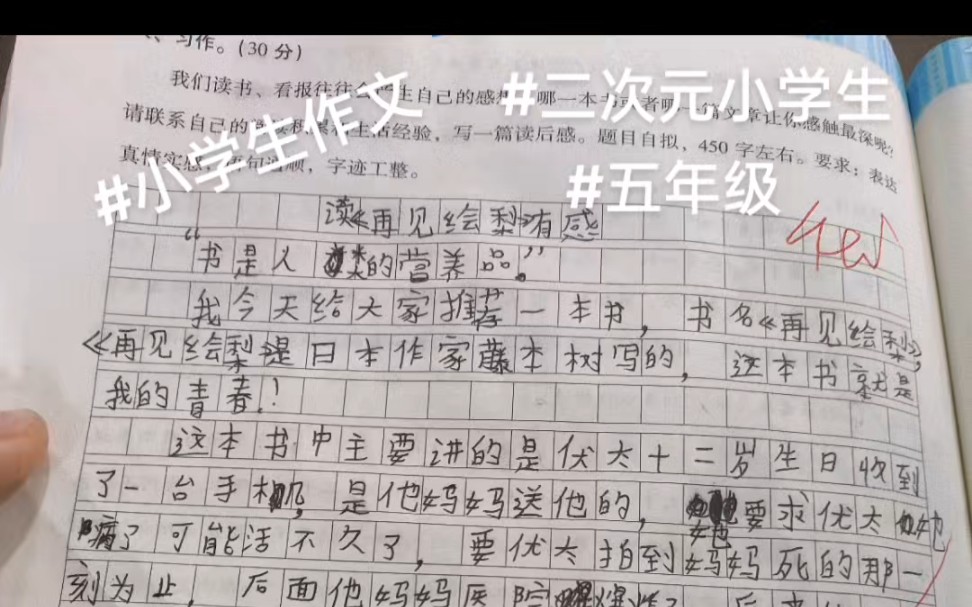 习作。(30分)
我们读书、看报往往会产生自己的感想。哪一本书或者哪一篇文章让你感触最深呢?
请联系自己的生活经验,写一篇读后感。题目自拟,450字左右。要求:表达
真情实感,语句通顺,字迹工整。
#小学生作文
#二次元小学生
#五年级
读《再见绘梨》有感
“书是人类的营养品。”
我今天给大家推荐一本书,书名《再见绘梨》,
《再见绘梨》是日本作家藤本树写的,这本书就是
我的青春!
这本书中主要讲的是伏太十二岁生日收到
了一台手机,是他妈妈送他的,要求伏太她
病了可能活不久了,要伏太拍到妈妈死的那一
刻为止,后面他妈妈医院